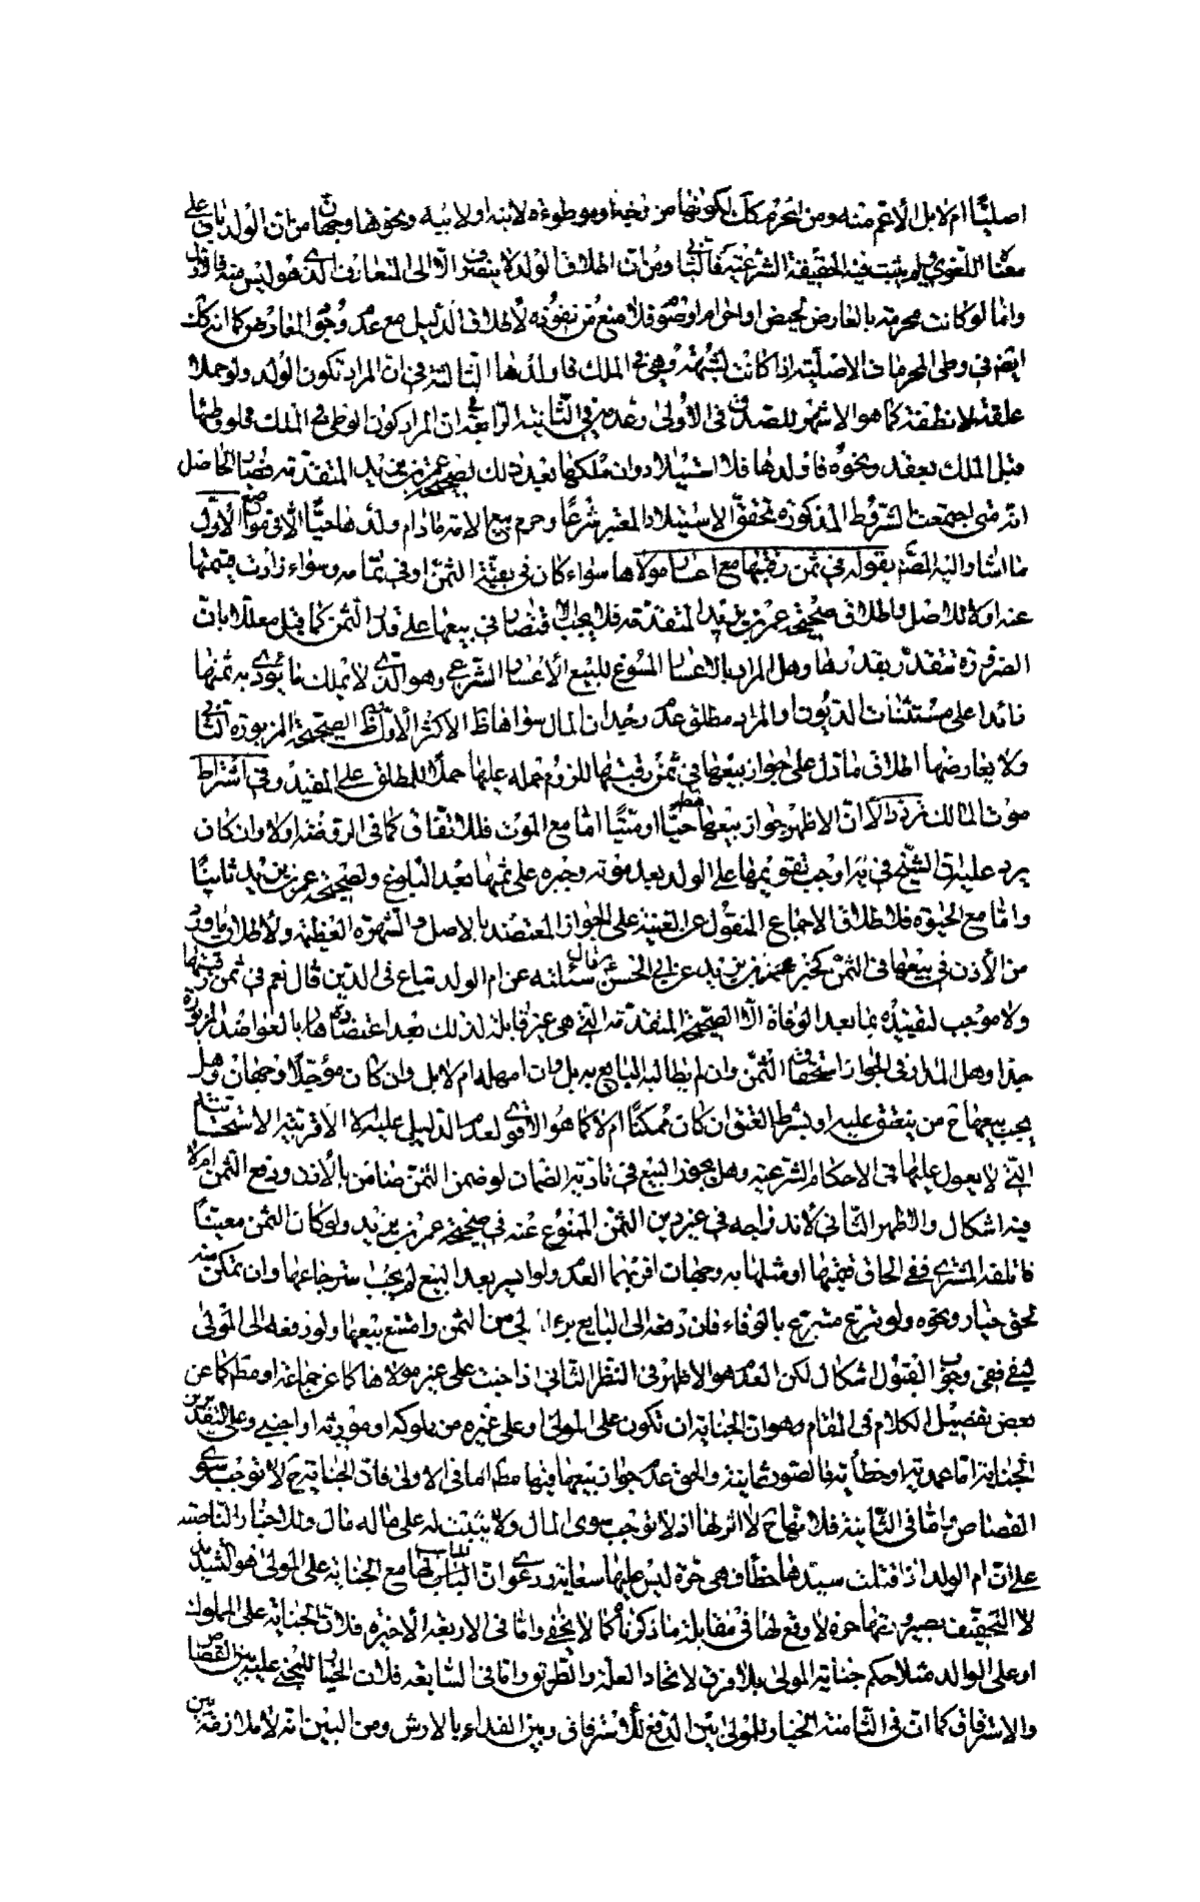 اصليتا ام لا بل الأعم منه ومن المحرم كك لكونها من زوجة او موطوءة لابنه او لابيه ونحوها وجهان من ان الولد باق على
معناه اللغوي ولم يثبت فيه الحقيقة الشرعية فالثاني ومن ان اطلاق الولد لا ينصرف الا الى المتعارف الذي هو ليس منه فالاول
واما لو كانت محرمة بالعارض كحيض او احرام او صوم فلا منع من نفوذه لاطلاق الدليل مع عدم وجود المعارض كما انه كك
ايضا في وطى المحرمات الاصلية اذا كانت لشبهة وهي في الملك فاولدها الثالثة في ان المراد تكون الولد ولو حملا
علقة لا نطفة كما هو الاشهر للصدق في الأولى وعدمه في الثانية الرابعة في ان المراد كون الوطى في الملك فلو وطئها
قبل الملك بعقد ونحوه فاولدها فلا استيلاد وان ملكها بعد ذلك لصحيحة عمر بن يزيد المتقدمة فصار الحاصل
انه متى اجتمعت الشروط المذكورة تحقق الاستيلاد المعتبر شرعا وحرم بيع الامة مادام ولدها حيا الا في مواضع الأول
ما اشار اليه المصنف بقوله في ثمن رقبتها مع اعسار مولاها سواء كان في بقية الثمن او في تمامه وسواء زادت قيمتها
عنه او لا للاصل واطلاق صحيحة عمر بن يزيد المتقدمة فلا يجب الاقتصار في بيعها على قدر الثمن كما قيل معللا بان
الضرورة تتقدر بقدرها وهل المراد بالاعسار المسوغ للبيع الأعسار الشرعي وهو الذي لا يملك ما يؤدي به ثمنها
زائدا على مستثنيات الديون او المراد مطلق عدم وجدان المال سواها ظاهر الاكثر الأول وظاهر الصحيحة المزبورة الثاني
ولا يعارضها اطلاق ما دل على جواز بيعها في ثمن رقبتها للزوم حمله عليها حملا للمطلق على المقيد وفي اشتراط
موت المالك تردد الا ان الاظهر جواز بيعها مطلقا حيا او ميتا اما مع الموت فللاتفاق كما في الروضة اولا وان كان
يرد عليه ان الشيخ في يه اوجب تقويمها على الولد بعد موته وجبره على ثمنها بعد البلوغ ولصحيحة عمر بن يزيد ثانيا
واما مع الحيوة فلاطلاق الاجماع المنقول عن الغنية على الجواز المعتضد بالاصل والشهرة العظيمة ولاطلاق ما ورد
من الأذن في بيعها في الثمن كخبر عمر بن يزيد عن ابي الحسن قال سئلته عن ام الولد تباع في الدين قال نعم في ثمن رقبتها
ولا موجب لتقييده بما بعد الوفاة الا الصحيحة المتقدمة التي هي غير قابلة لذلك بعد اعتضاده هنا بالعواضد المزبورة
جدا وهل المدار في الجواز استحقاق الثمن وان لم يطالبه البايع به بل وان امهله ام لا بل وان كان مؤجلا وجهان وهل
يجب بيعها ح من ينعتق عليه او بشرط العتق ان كان ممكنا ام لا كما هو الأقوى لعدم الدليل عليه الا قريبة الاستحسان
التي لا يعول عليها في الاحكام الشرعية وهل يجوز البيع في تأدية الضمان لو ضمن الثمن ضامن بالأذن ودفع الثمن ام لا
فيه اشكال والاظهر الثاني لاندراجه في غير دين الثمن الممنوع عنه في صحيحة عمر بن يزيد ولو كان الثمن معينا
فاتلفه المشتري ففي الحاق قيمتها او مثلها به وجهان اقربهما العدم ولو ايسر بعد البيع لم يجب استرجاعها وان تمكن منه
لحق خيار ونحوه ولو تبرع متبرع بالوفاء فان دفعه الى البايع برء المولى من الثمن وامتنع بيعها ولو دفعه الى المولى
ليفي ففي وجوب القبول اشكال لكن العدم هو الاظهر في النظر الثاني اذا جنت على غير مولاها كما عن جماعة او مطلقا كما عن
بعض تفصيل الكلام في المقام وهو ان الجناية ان تكون على المولى او على غيره من مملوكه او مورثه او اجنبي وعلى التقديرين
الجناية اما عمدية او خطأية فالصور ثمانية والحق عدم جواز بيعها فيها مطلقا اما في الاولى فلان الجناية ح لا توجب سوى
القصاص واما في الثانية فلانها ح لا اثر لها اذ لا توجب سوى المال ولا يثبت له على ماله مال وللاخبار الناصة
على ان ام الولد اذا قتلت سيدها خطأ فهي حرة ليس عليها سعاية ودعوى ان المناسب لها مع الجناية على المولى هو التشديد
لا التخفيف بصيرورتها حرة لا وقع لها في مقابلة ما ذكرناه كما لا يخفى واما في الاربعة الأخيرة فلان الجناية على المملوك
او على الوالد مثلا حكم جناية المولى بلا فرق لاتحاد العلة والطريق واما في السابعة فلان الخيار للمجني عليه بين القصاص
والاسترقاق كما ان في الثامنة الخيار للمولى بين الدفع للاسترقاق وبين الفداء بالارش ومن البين انه لا ملازمة بين